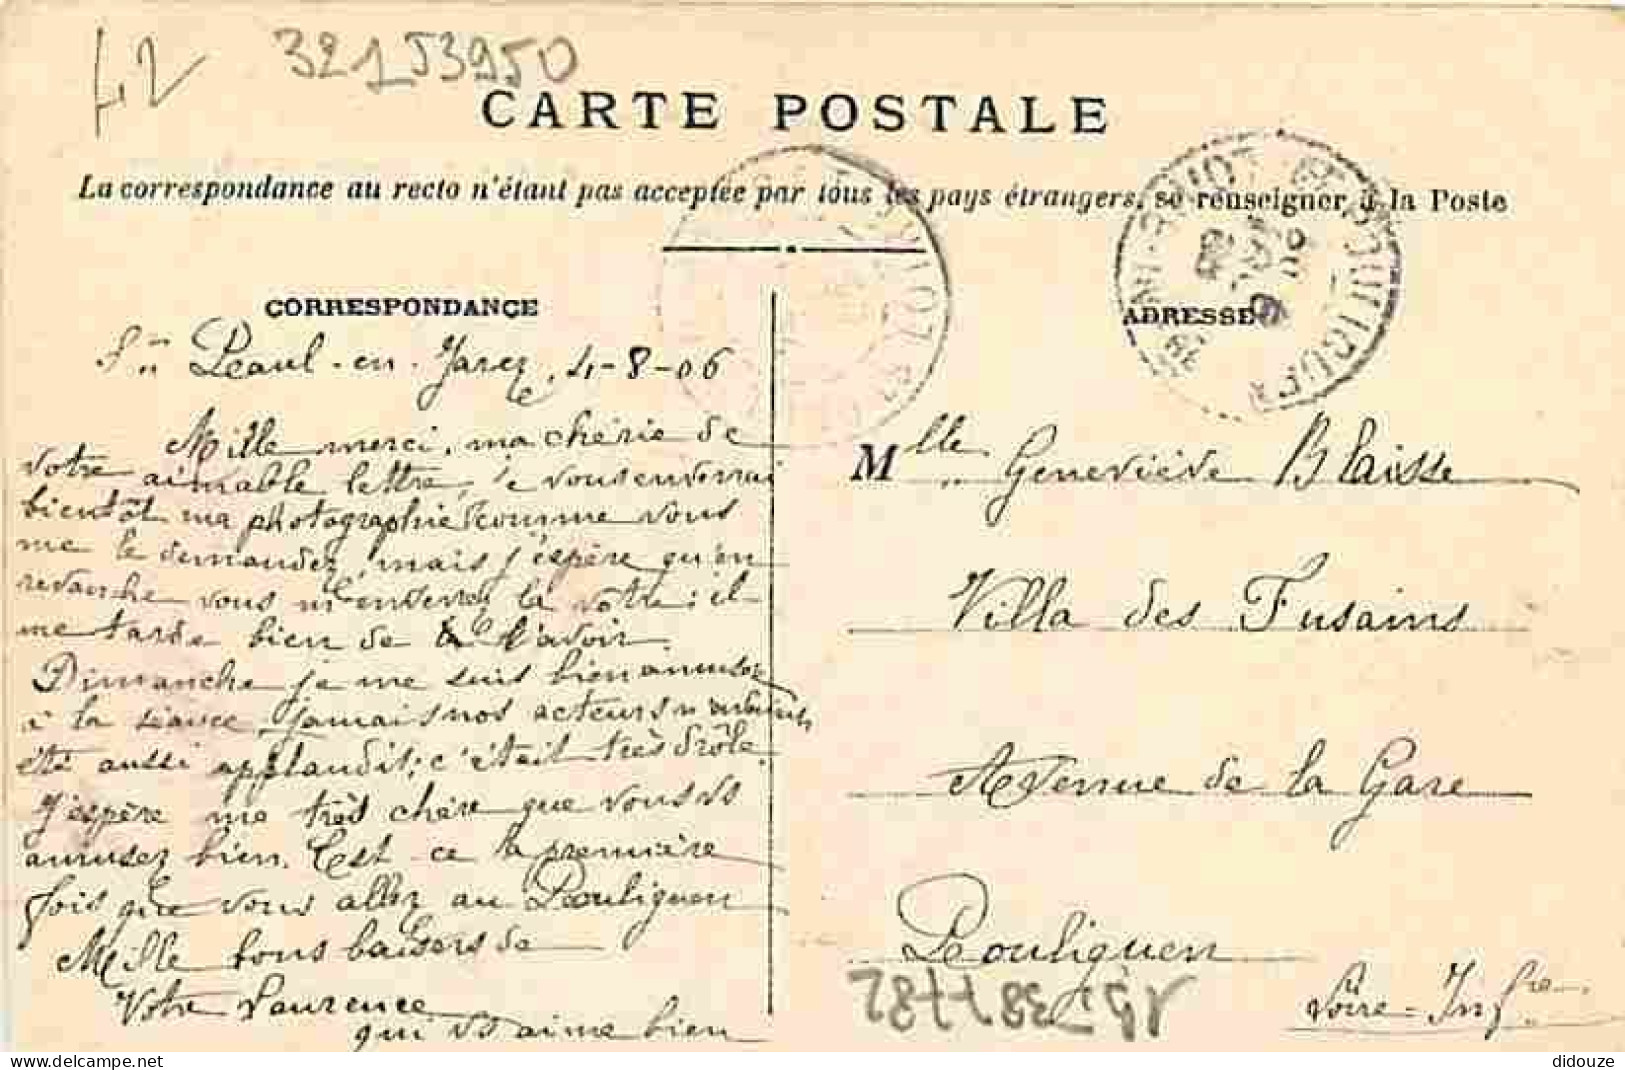 42
32153950
CARTE POSTALE
La correspondance au recto n'étant pas acceptée par tous les pays étrangers, se renseigner à la Poste
CORRESPONDANCE
ADRESSE
Paul-en-Jarez, 4-8-06
Mille merci, ma chérie de
votre aimable lettre, je vous enverrai
bientôt ma photographie comme vous
me le demandez, mais j'espère qu'en
revanche vous m'enverrez la votre: il
me tarde bien de l'avoir.
Dimanche je me suis bien amusée
à la séance, jamais nos acteurs n'avaient
été aussi applaudit; c'était très drôle.
J'espère ma très chère que vous vs
amusez bien. Est-ce la première
fois que vous allez au Pouliguen
Mille bons baisers de
Votre Laurence
qui vs aime bien
Mlle Geneviève Blaisse
Villa des Fusains
Avenue de la Gare
Pouliguen
Loire-Infre
didouze